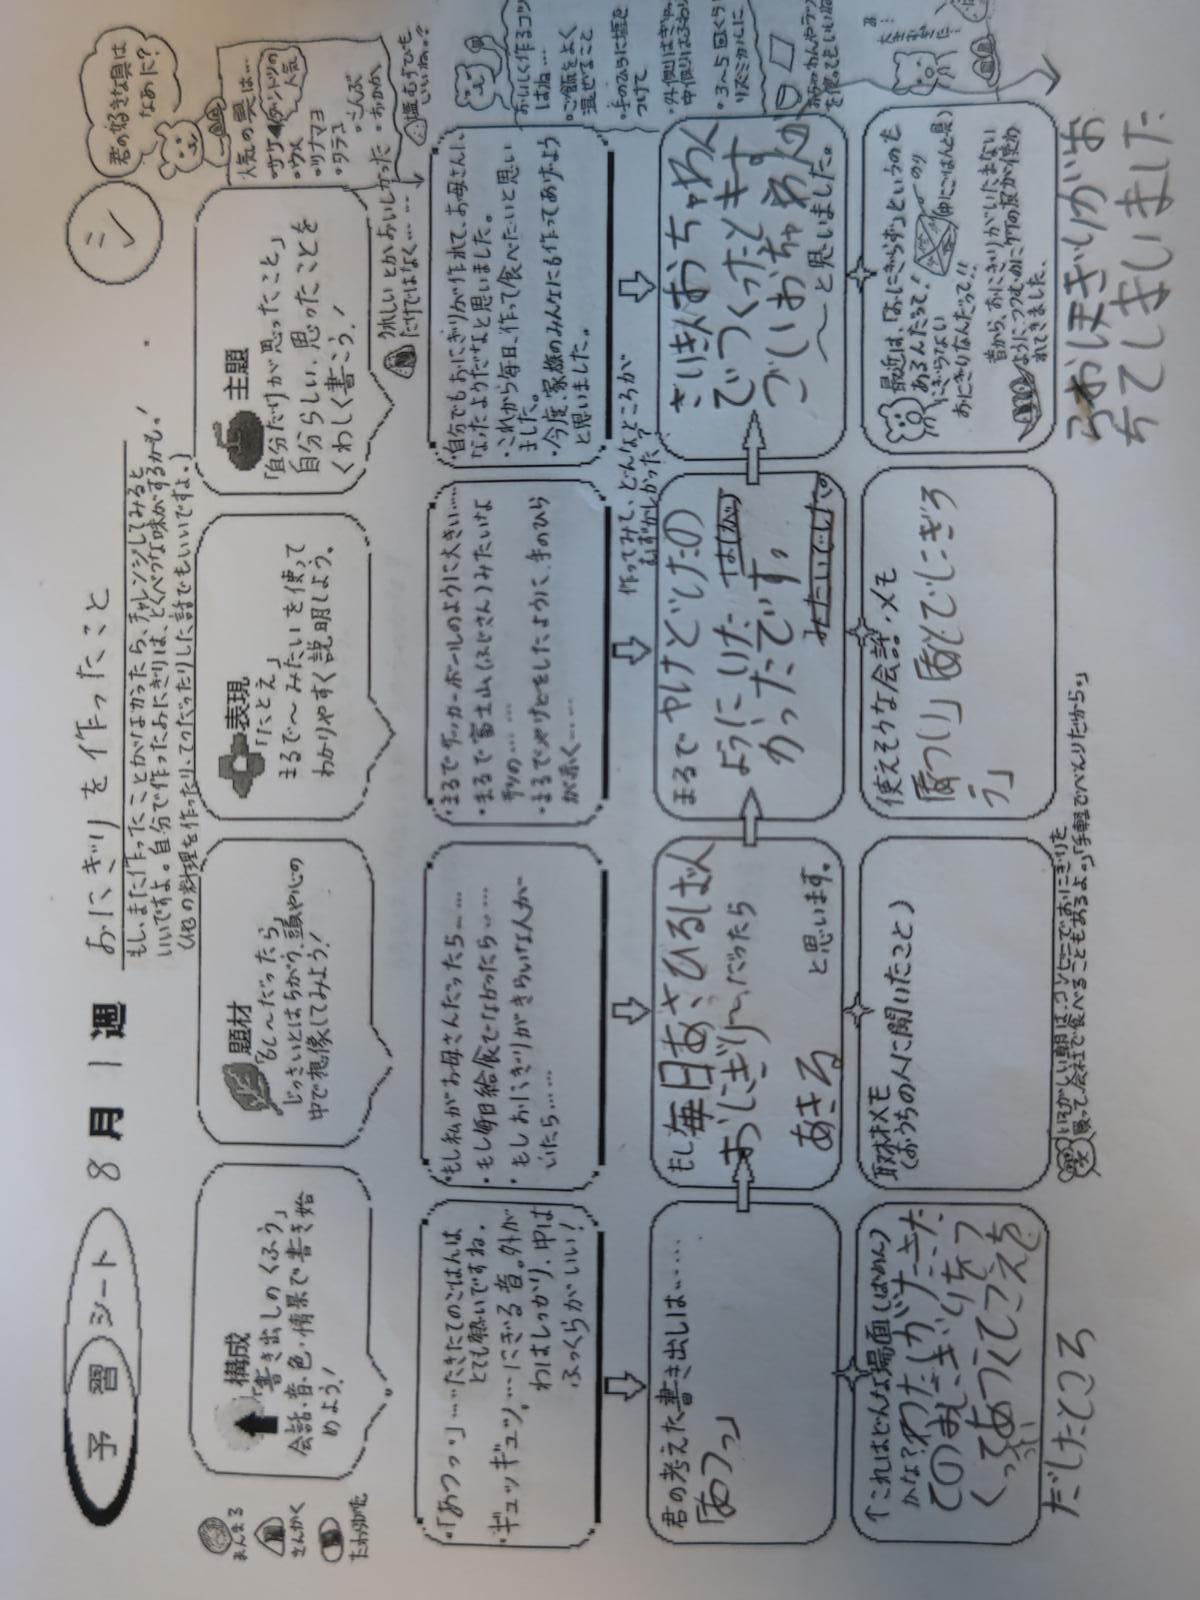 予習シート 8月1週 おにぎりを作ったこと
シ
もし、まだ作ったことがなかったら、チャレンジしてみると
いいですよ。自分で作ったおにぎりは、とくべつな味がするかも!
(他の料理を作ったり、てつだったりした話でもいいですよ。)
君の好きな具は
なあに?
人気の具は…
・サケ
・ウメ
・ツナマヨ
・タラコ
・こんぶ
・おかか
塩むすびも
いいね。
まんまる
さんかく
たわらがた
構成
「書き出しのくふう」
会話・音・色・情景で書き始
めよう!
題材
「もし〜だったら」
じっさいとはちがう、頭や心の
中で想像してみよう!
表現
「たとえ」
まるで〜みたいを使って
わかりやすく説明しよう。
主題
「自分だけが思ったこと」
自分らしい、思ったことを
くわしく書こう!
うれしいとかおいしかった
だけではなく……
・「あつっ」……たきたてのごはんは
とても熱いですね。
・ギュッギュッ……にぎる音。外が
わはしっかり、中は
ふっくらがいい!
・もし私がお母さんだったら……
・もし毎日給食でなかったら……
・もしおにぎりがきらいな人が
いたら……
・まるでサッカーボールのように大きい……
・まるで富士山(ふじさん)みたいな
形の……
・まるでやけどをしたように、手のひら
が赤く……
・自分でもおにぎりが作れて、お母さんに
なったようだなと思いました。
・これから毎日、作って食べたいと思い
ました。
・今度、家族のみんなにも作ってあげよう
と思いました。
おいしく作るコツ
はね…
・ご飯をよく
混ぜること
・手のひらに塩を
つけて
・3〜5回くらい
リズミカルに
作ってみて、どんなところが
むずかしかった?
君の考えた書き出しは……
「あつっ」
もし毎日あさひるばん
おにぎり〜だったら
あきる
と思います。
まるでやけどしたの
ようにいた
かったです。
さいきんおちゃわん
でつくったとき
すごいおちゃわん
〜と思いました。
↑これはどんな場面(ばめん)
かな?わたしがたきた
てのおにぎりをつ
くってあつくてこえを
だしたところ
取材メモ
(おうちの人に聞いたこと)
いそがしい朝は、コンビニでおにぎりを
買って、会社で食べることもあるよ。」「手軽でべんりだから。」
使えそうな会話・メモ
「あつい」「あとでにぎろ
う」
最近は、「おにぎらず」というのも
あるんだって!
にぎらない
おにぎりなんだって!!
のり
(中にごはんと具)
昔から、おにぎりがいたまない
ようにつつむのにタケの皮が使わ
れてきました。
おにぎりがお
ちてしまいました